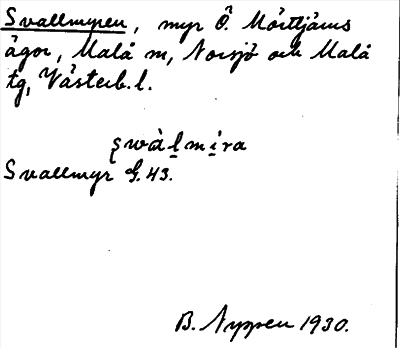 Svallmyren, myr Ö. Mörttjärns
ägor, Malå sn, Norsjö och Malå
tg, Västerb. l.
Svallmyr G. 43.
B. Nyppen 1930.